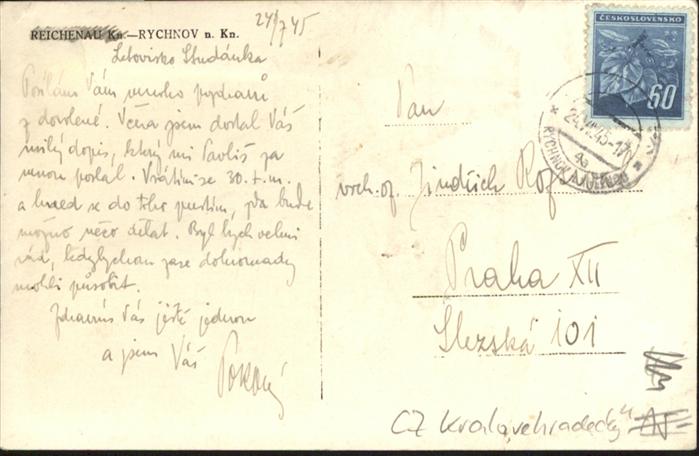 24/7 45
REICHENAU Kn.—RYCHNOV n. Kn.
Letovisko Studánka
Posílám Vám mnoho pozdravů
z dovolené. Včera jsem dostal Váš
milý dopis, který mi Pavliš za
mnou poslal. Vrátím se 30. t. m.
a hned se do toho pustím, bude
možno něco dělat. Byl bych velmi
rád, kdybychom zase dohromady
mohli působit.
Zdravím Vás ještě jednou
a jsem Váš
Pokorný
ČESKOSLOVENSKO
60
24.VII.45-17
4a
RYCHNOV
Pan
vrch. of. Jindřich
Praha XII
Slezská 101
CZ Kralovehradecky